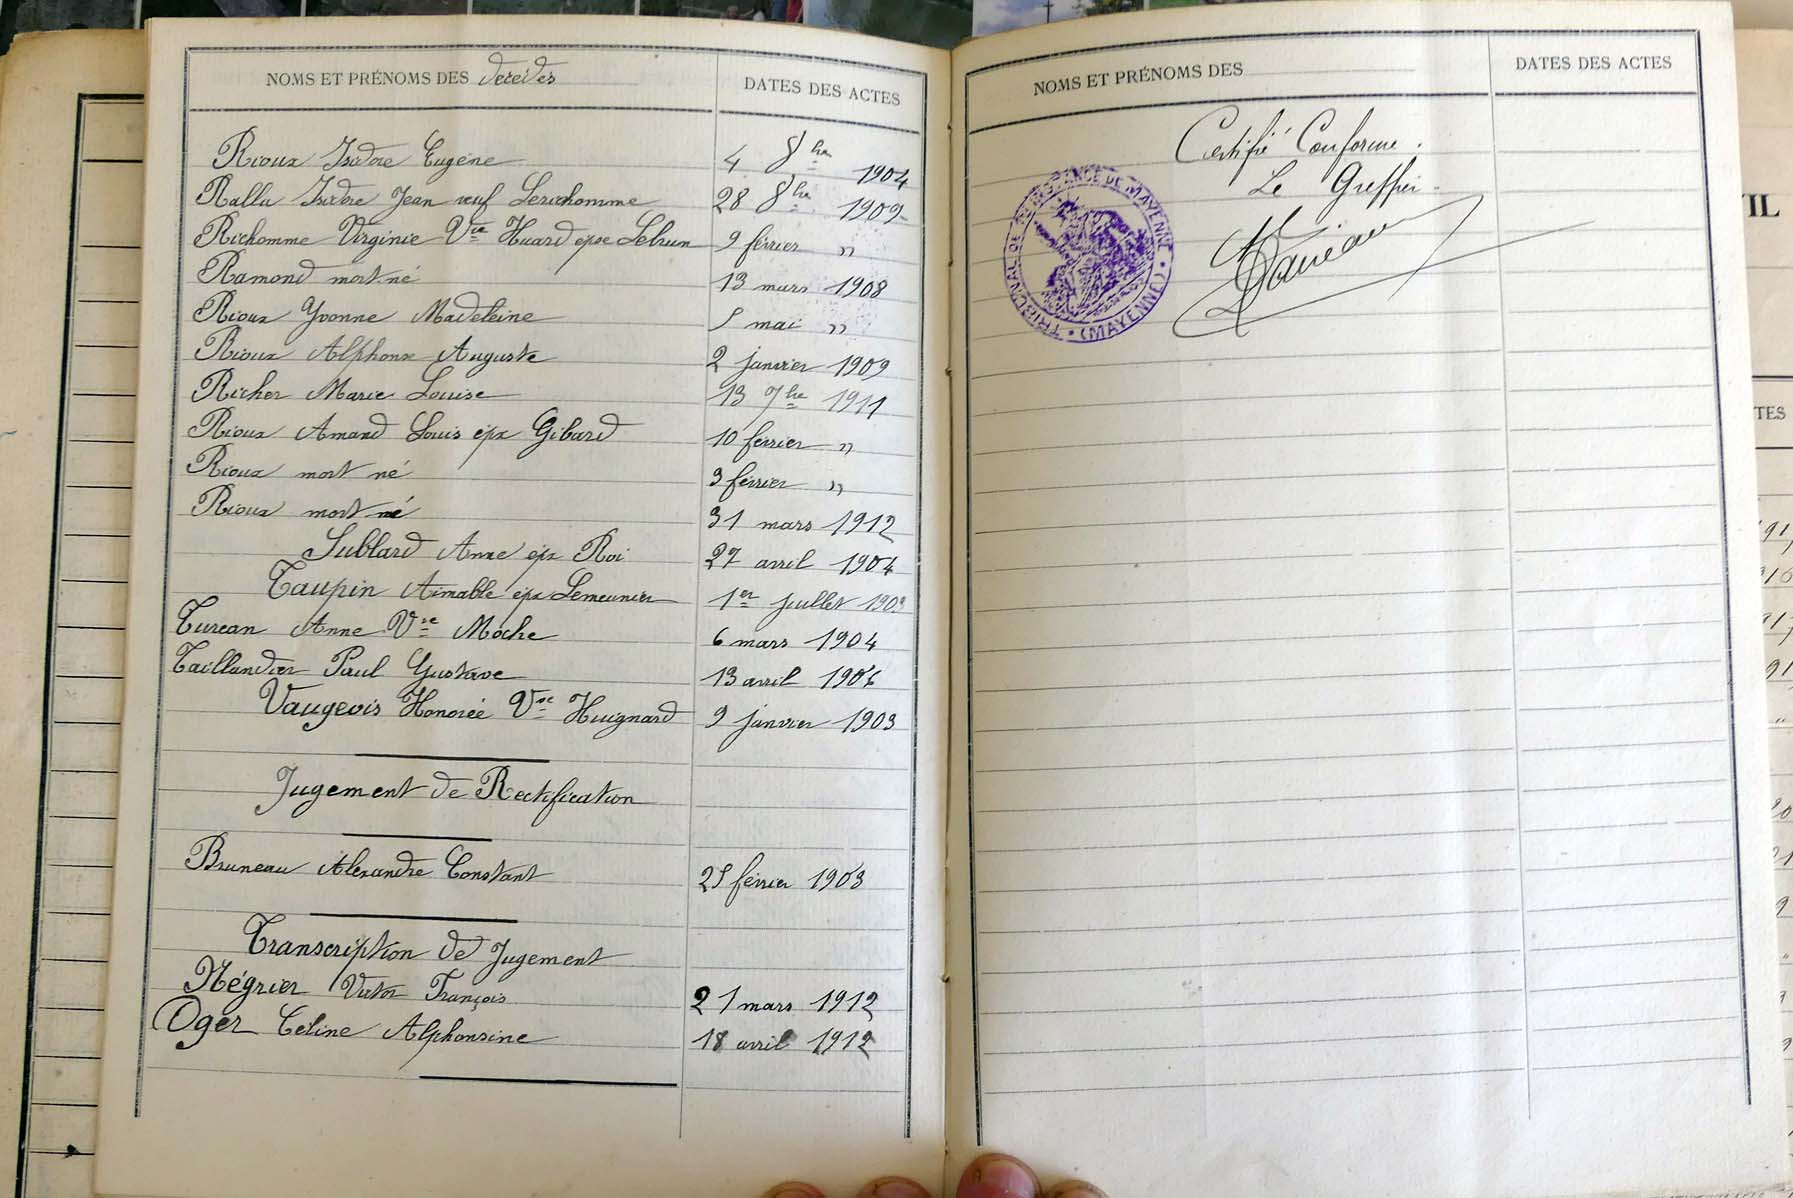 NOMS ET PRÉNOMS DES décédés
DATES DES ACTES
Rioux Isidore Eugène 4 8bre 1904
Rallu Isidore Jean veuf 28 8bre 1909
Richomme Virginie Vve Huard épse Lebrun 9 février "
Ramond mort né 13 mars 1908
Rioux Yvonne Madeleine 5 mai "
Rioux Alphonse Auguste 2 janvier 1909
Richer Marie Louise 13 7bre 1911
Rioux Amand Louis épx Gibard 10 février "
Rioux mort né 3 février "
Rioux mort né 31 mars 1912
Sublard Anne épx Roi 27 avril 1904
Taupin Aimable épx Lemeunier 1er juillet 1903
Turcan Anne Vve Moche 6 mars 1904
Taillandier Paul Gustave 13 avril
Vaugeois Honorée Vve Huignard 9 janvier 1903
Jugement de Rectification
Bruneau Alexandre Constant 25 février 1903
Transcription de Jugement
Négrier Victor François 21 mars 1912
Oger Céline Alphonsine 18 avril 1912
NOMS ET PRÉNOMS DES
DATES DES ACTES
Certifié Conforme.
Le Greffier.
TRIBUNAL DE 1ère INSTANCE DE MAYENNE • (MAYENNE) •
VIL
TES